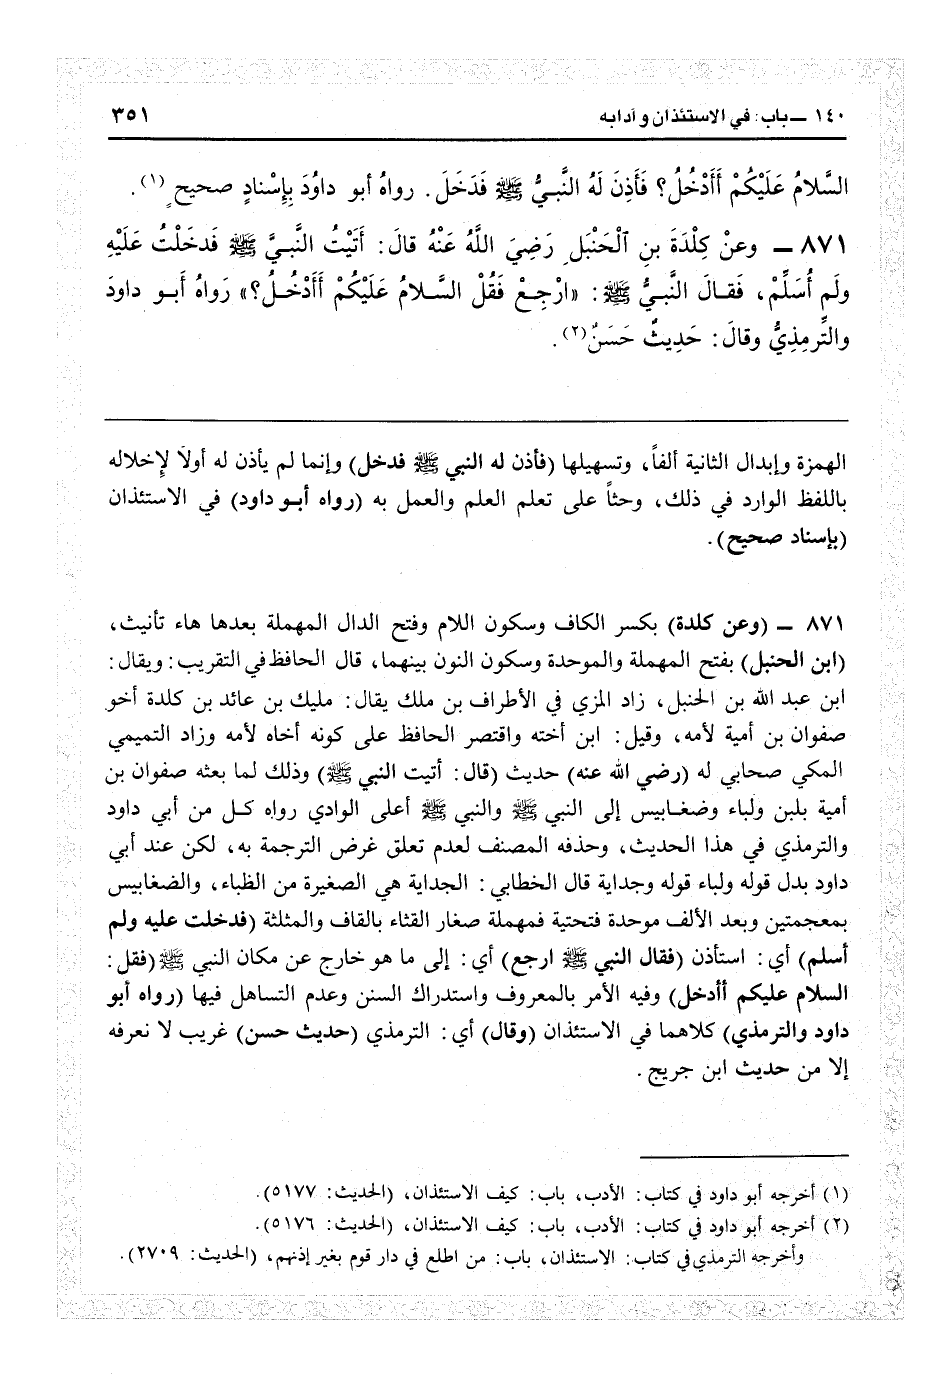 ١٤٠ ــ باب: في الاستئذان وآدابه ٣٥١
السَّلامُ عَلَيْكُمْ أَأَدْخُلُ؟ فَأَذِنَ لَهُ النَّبيُّ ﷺ فَدَخَلَ. رواهُ أبو داوُدَ بِإِسْنادٍ صحيحٍ(١).
٨٧١ ــ وعنْ كِلْدَةَ بنِ ٱلْحَنْبَلِ رَضِيَ اللَّهُ عَنْهُ قالَ: أَتَيْتُ النَّبيَّ ﷺ فَدخَلْتُ عَلَيْهِ
ولَم أُسَلِّمْ، فَقالَ النَّبيُّ ﷺ: «ارْجِعْ فَقُلْ السَّلامُ عَلَيْكُمْ أَأَدْخُلُ؟» رَواهُ أَبو داودَ
والتِّرمِذِيُّ وقالَ: حَدِيثٌ حَسَنٌ(٢).
الهمزة وإبدال الثانية ألفاً، وتسهيلها (فأذن له النبي ﷺ فدخل) وإنما لم يأذن له أولاً لإخلاله
باللفظ الوارد في ذلك، وحثاً على تعلم العلم والعمل به (رواه أبو داود) في الاستئذان
(بإسناد صحيح).
٨٧١ ــ (وعن كلدة) بكسر الكاف وسكون اللام وفتح الدال المهملة بعدها هاء تأنيث،
(ابن الحنبل) بفتح المهملة والموحدة وسكون النون بينهما، قال الحافظ في التقريب: ويقال:
ابن عبد الله بن الحنبل، زاد المزي في الأطراف بن ملك يقال: مليك بن عائد بن كلدة أخو
صفوان بن أمية لأمه، وقيل: ابن أخته واقتصر الحافظ على كونه أخاه لأمه وزاد التميمي
المكي صحابي له (رضي الله عنه) حديث (قال: أتيت النبي ﷺ) وذلك لما بعثه صفوان بن
أمية بلبن ولباء وضغابيس إلى النبي ﷺ والنبي ﷺ أعلى الوادي رواه كل من أبي داود
والترمذي في هذا الحديث، وحذفه المصنف لعدم تعلق غرض الترجمة به، لكن عند أبي
داود بدل قوله ولباء قوله وجداية قال الخطابي: الجداية هي الصغيرة من الظباء، والضغابيس
بمعجمتين وبعد الألف موحدة فتحتية فمهملة صغار القثاء بالقاف والمثلثة (فدخلت عليه ولم
أسلم) أي: استأذن (فقال النبي ﷺ ارجع) أي: إلى ما هو خارج عن مكان النبي ﷺ (فقل:
السلام عليكم أأدخل) وفيه الأمر بالمعروف واستدراك السنن وعدم التساهل فيها (رواه أبو
داود والترمذي) كلاهما في الاستئذان (وقال) أي: الترمذي (حديث حسن) غريب لا نعرفه
إلا من حديث ابن جريج.
(١) أخرجه أبو داود في كتاب: الأدب، باب: كيف الاستئذان، (الحديث: ٥١٧٧).
(٢) أخرجه أبو داود في كتاب: الأدب، باب: كيف الاستئذان، (الحديث: ٥١٧٦).
وأخرجه الترمذي في كتاب: الاستئذان، باب: من اطلع في دار قوم بغير إذنهم، (الحديث: ٢٧٠٩).